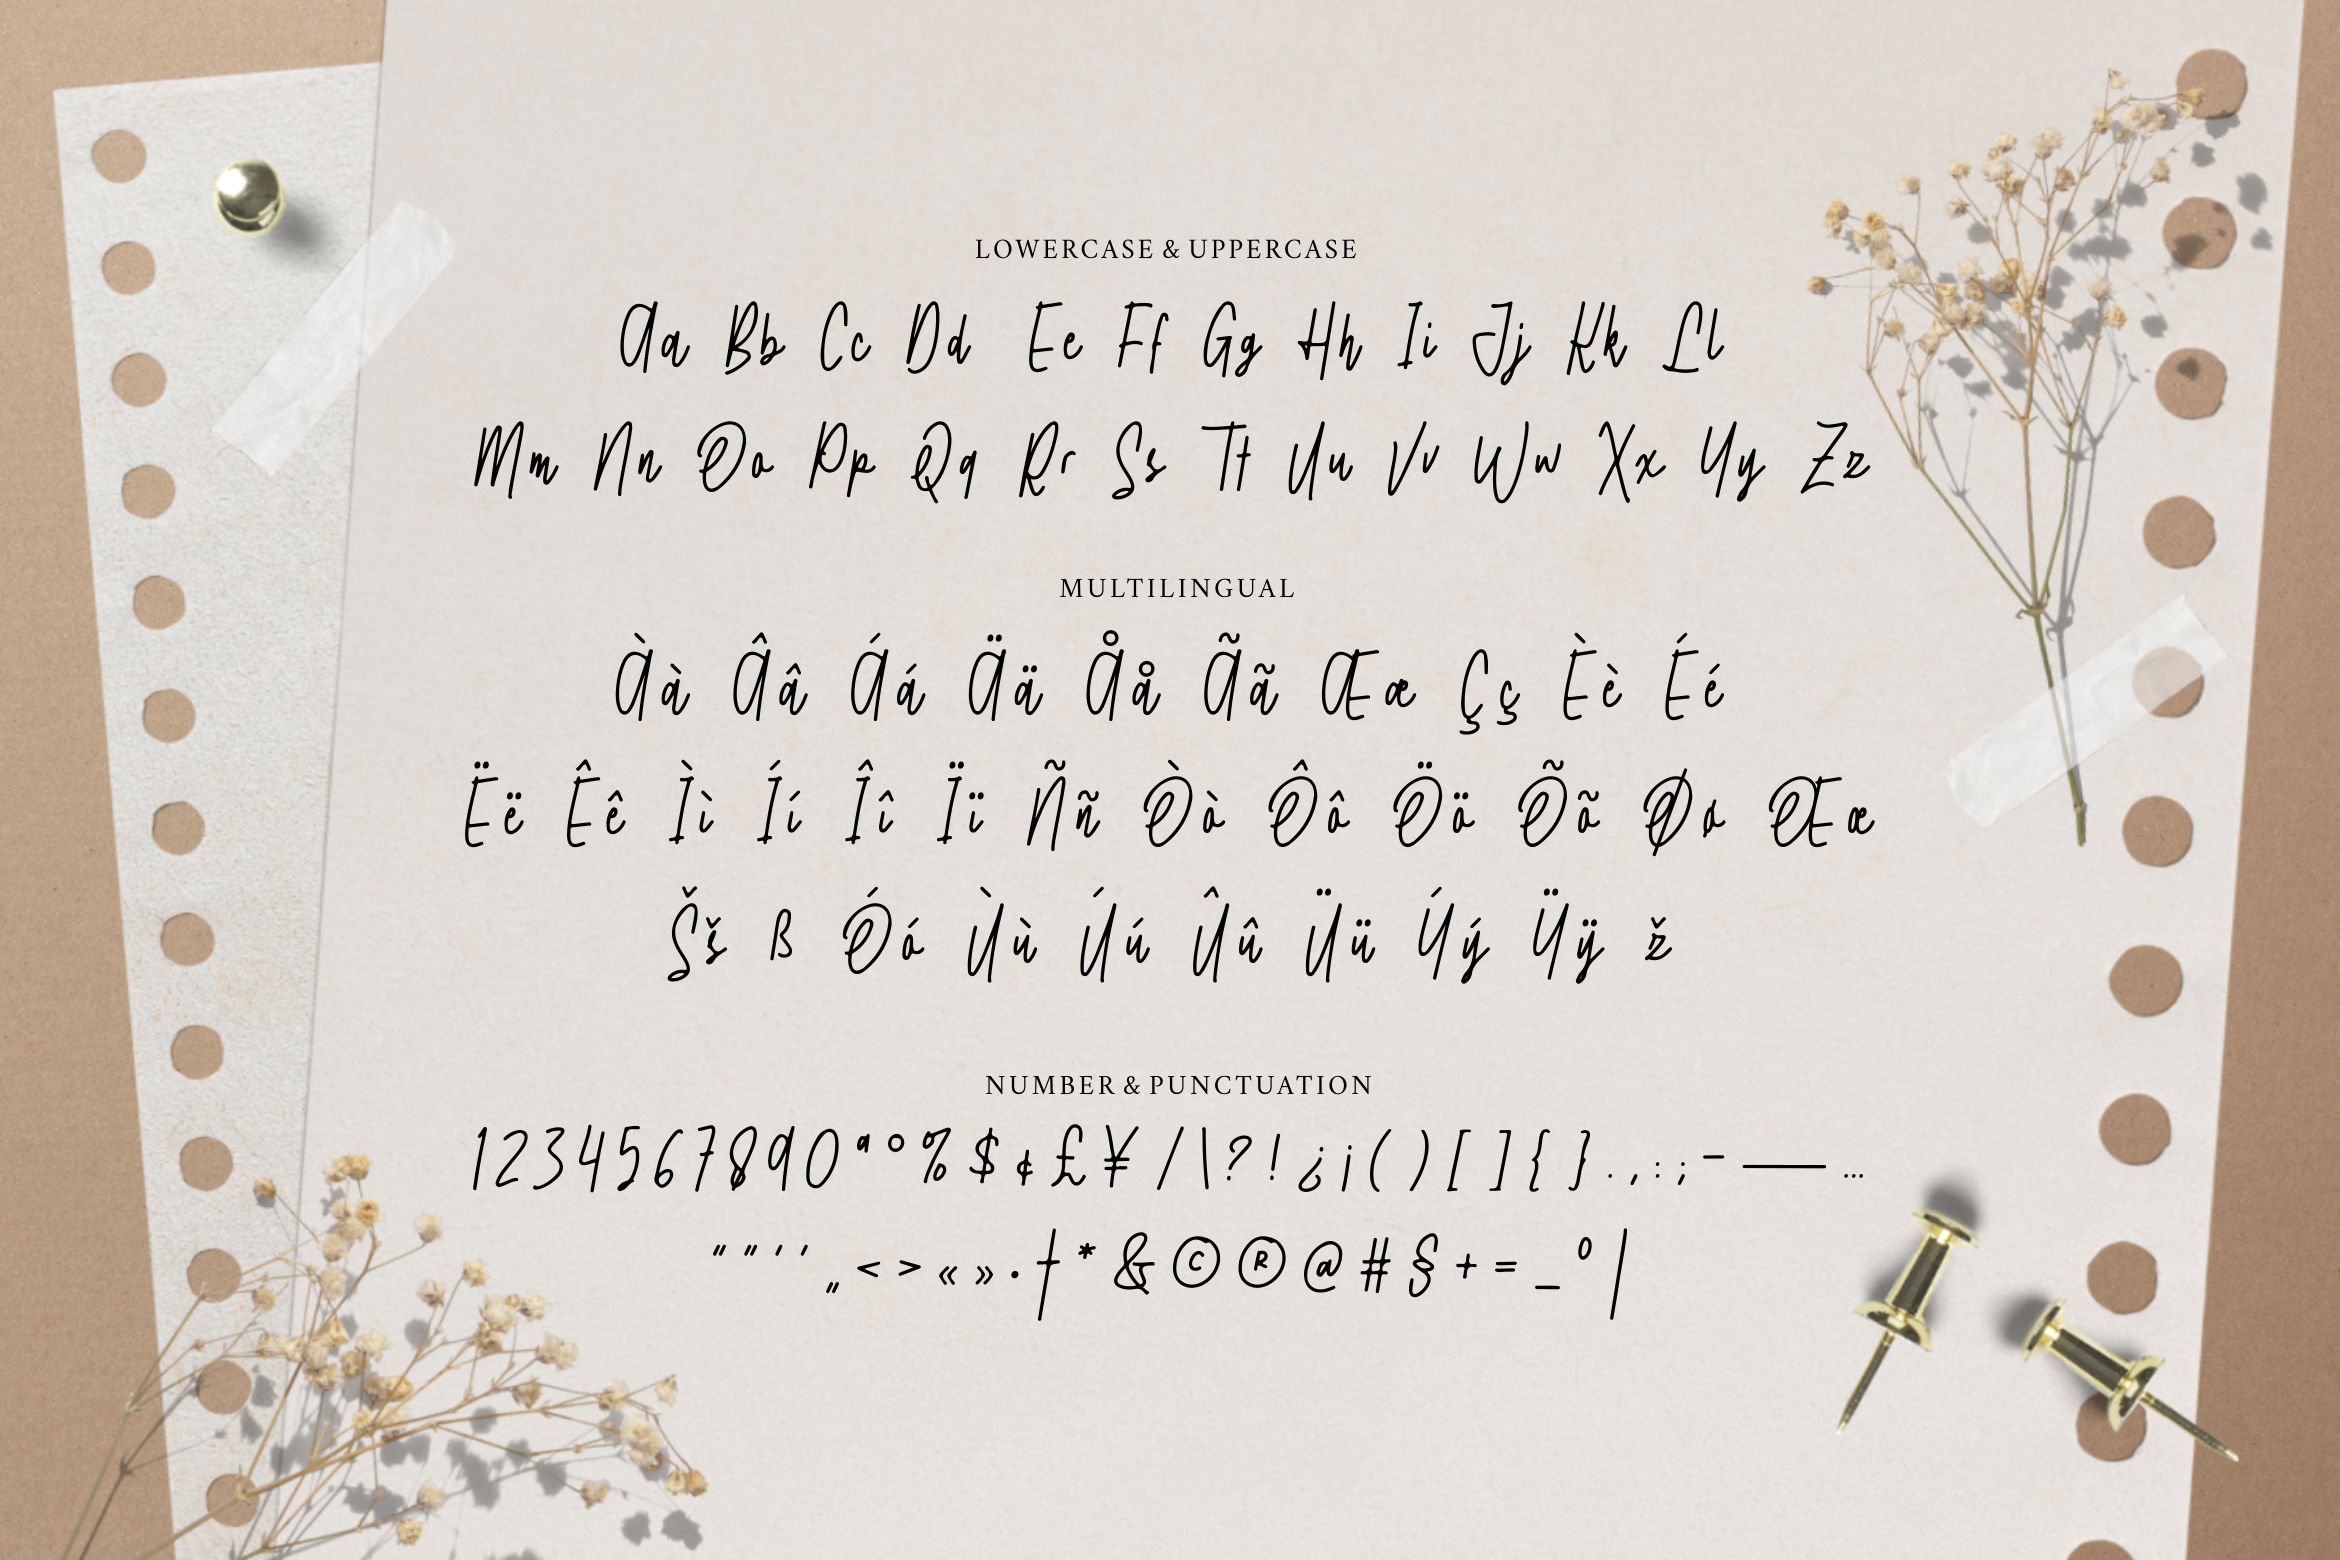 LOWERCASE & UPPERCASE
Aa Bb Cc Dd Ee Ff Gg Hh Ii Jj Kk Ll
Mm Nn Oo Pp Qq Rr Ss Tt Uu Vv Ww Xx Yy Zz
MULTILINGUAL
Àà Ââ Áá Ää Åå Ãã Ææ Çç Èè Éé
Ëë Êê Ìì Íí Îî Ïï Ññ Òò Ôô Öö Õõ Øø Œœ
Šš ß Óó Ùù Úú Ûû Üü Ýý Ÿÿ ž
NUMBER & PUNCTUATION
1 2 3 4 5 6 7 8 9 0 ª º % $ ¢ £ ¥ / \ ? ! ¿ ¡ ( ) [ ] { } . , : ; – — …
“ ” ‘ ’ „ < > « » • † * & © ® @ # § + = _ ° |